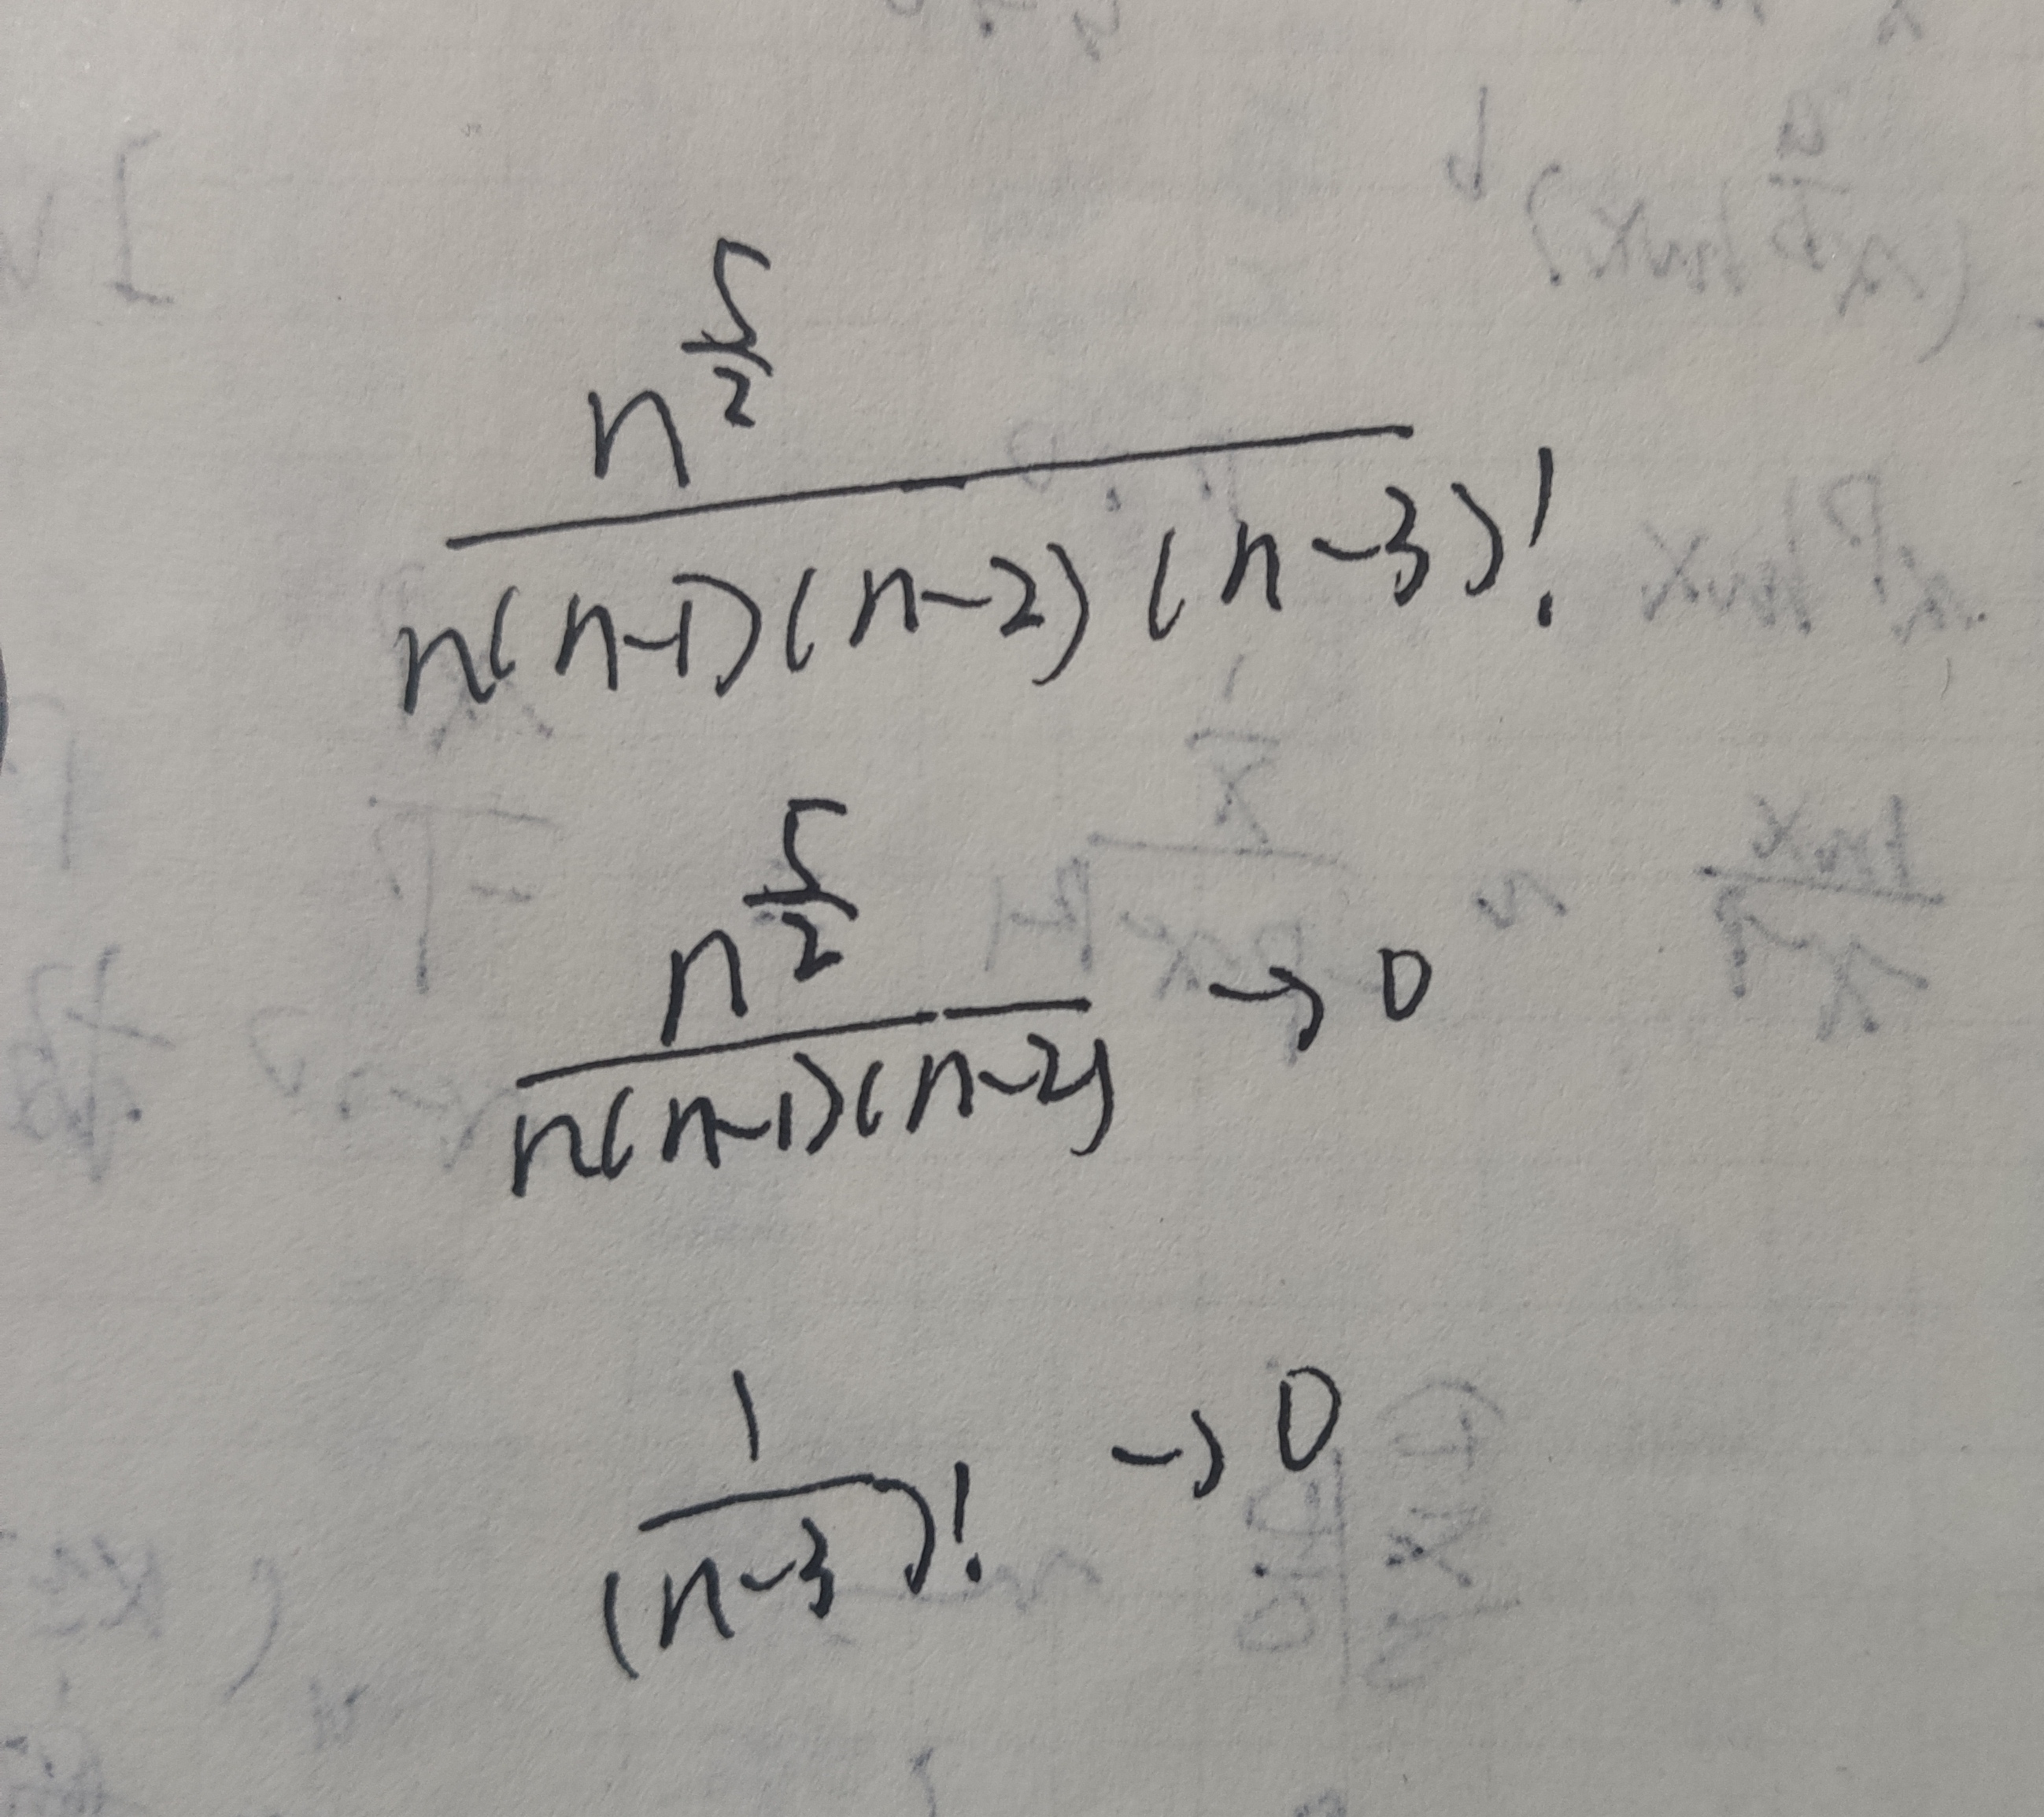 n^{\frac{5}{2}} / n(n-1)(n-2)(n-3)!
n^{\frac{5}{2}} / n(n-1)(n-2) → 0
1 / (n-3)! → 0